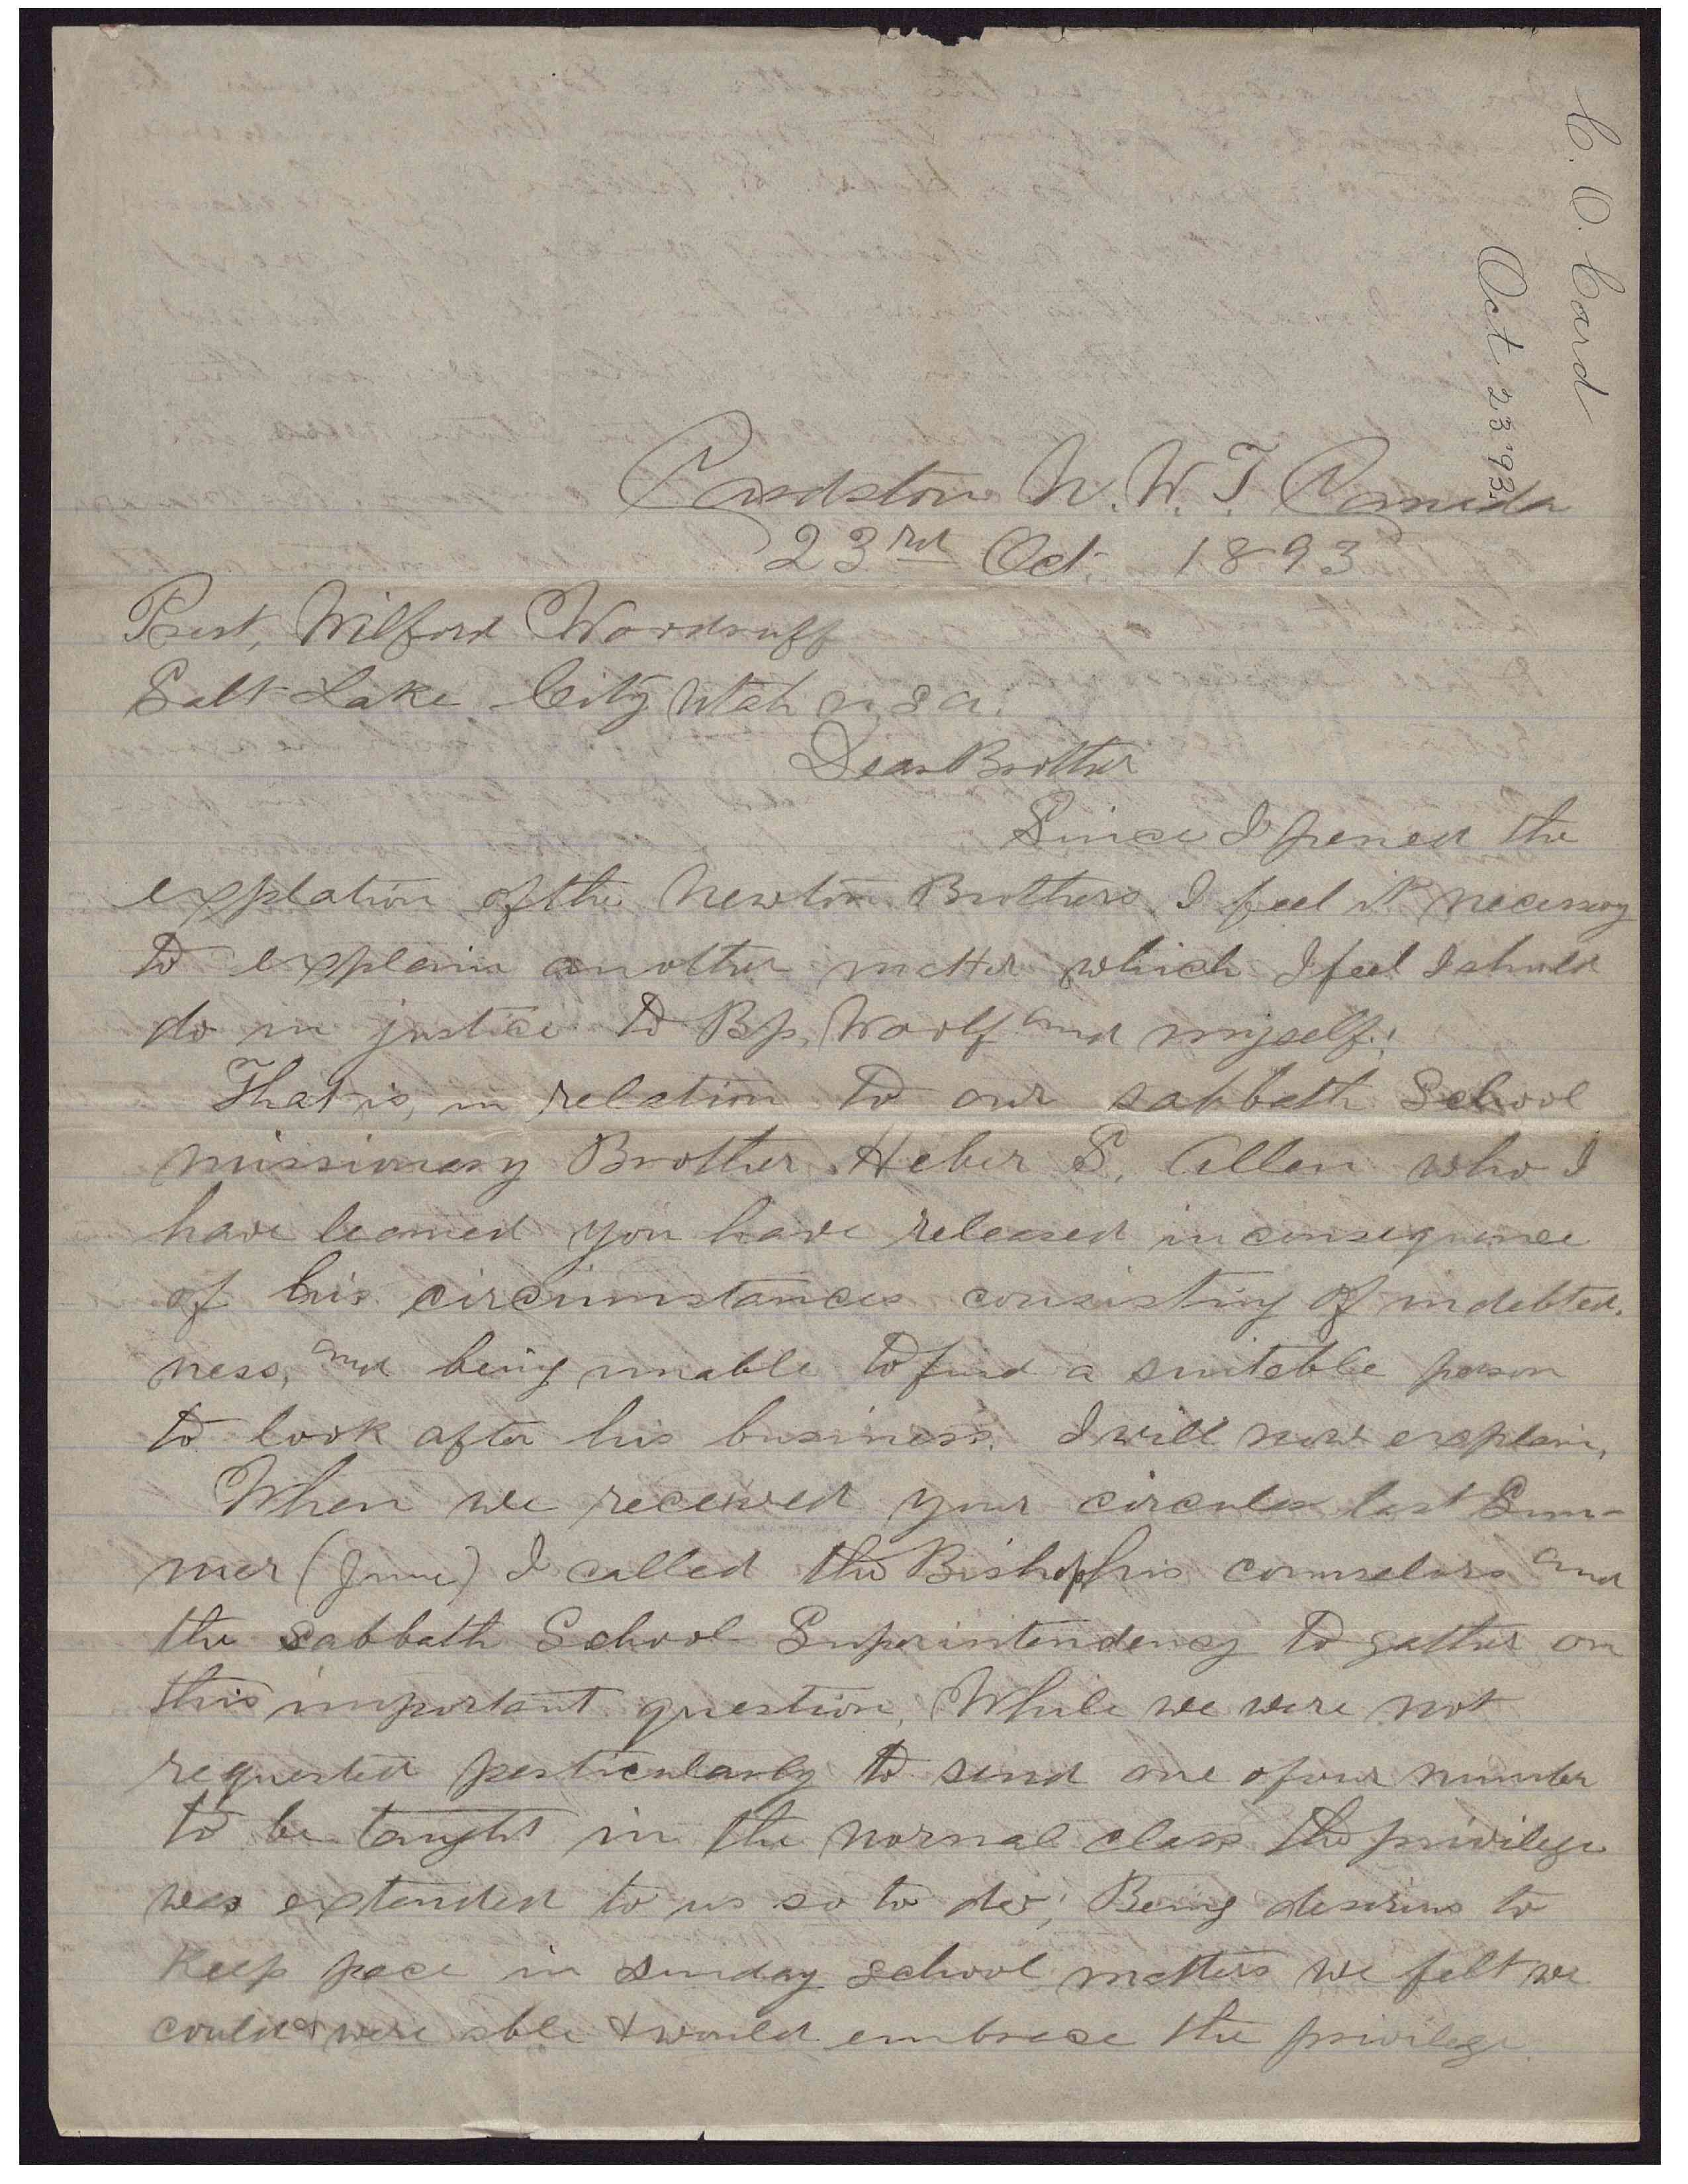 C. O. Card
Oct 23 '93.
Cardston N. W. T. Canada
23rd Oct. 1893
Prest, Wilford Woodruff
Salt Lake City Utah U.S.A.
Dear Brother
Since I penned the
explation of the Newton Brothers I feel it necessary
to explain another matter which I feel I should
do in justice to Bp. Woolf and myself.
That is, in relation to our sabbath School
missionary Brother Heber S. Allen who I
have learned you have released in consequence
of his circumstances consisting of indebted-
ness, and being unable to find a suitable person
to look after his business. I will now explain,
When we received your circular last Sum-
mer (June) I called the Bishop his counselors and
the Sabbath School Superintendency to gather on
this important question, While we were not
requested perticularly to send one of our number
to be taught in the normal class the privilege
was extended to us so to do; Being desirius to
Keep pace in sunday school matters we felt we
could & were able & would embrace the privilege.